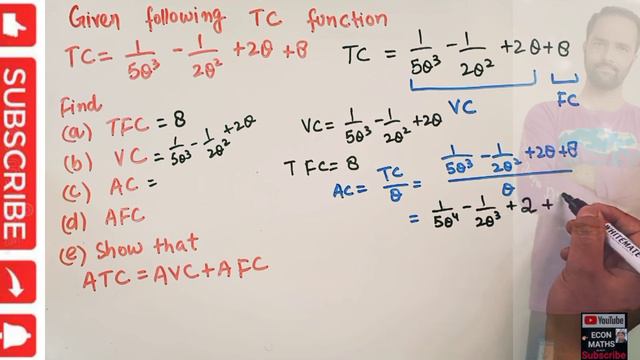 SUBSCRIBE
Given following TC function
TC = 1/5θ³ - 1/2θ² + 2θ + 8
Find
(a) TFC = 8
(b) VC = 1/5θ³ - 1/2θ² + 2θ
(c) AC =
(d) AFC
(e) Show that
ATC = AVC + AFC
TC = 1/5θ³ - 1/2θ² + 2θ + 8
VC FC
VC = 1/5θ³ - 1/2θ² + 2θ
TFC = 8
AC = TC/θ = (1/5θ³ - 1/2θ² + 2θ + 8)/θ
= 1/5θ⁴ - 1/2θ³ + 2 +
WHITEMATE
YouTube
ECON
MATHS
Subscribe